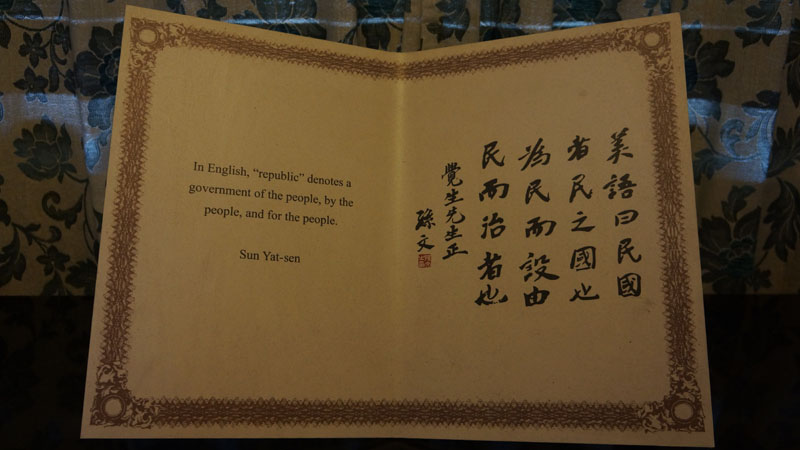 In English, “republic” denotes a
government of the people, by the
people, and for the people.
Sun Yat-sen
英語曰民國
者民之國也
為民而設由
民而治者也
覺生先生正
孫文